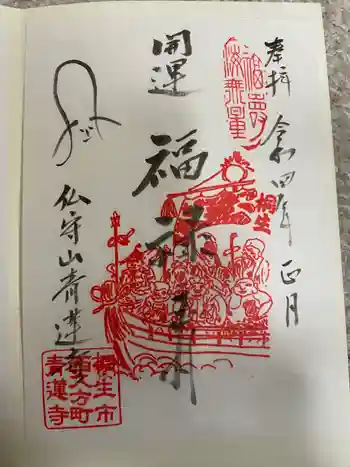 奉拝
令和四年正月
福寿海無量
開運
福禄寿
桐生
仏守山青蓮寺
桐生市
西久方町
青蓮寺